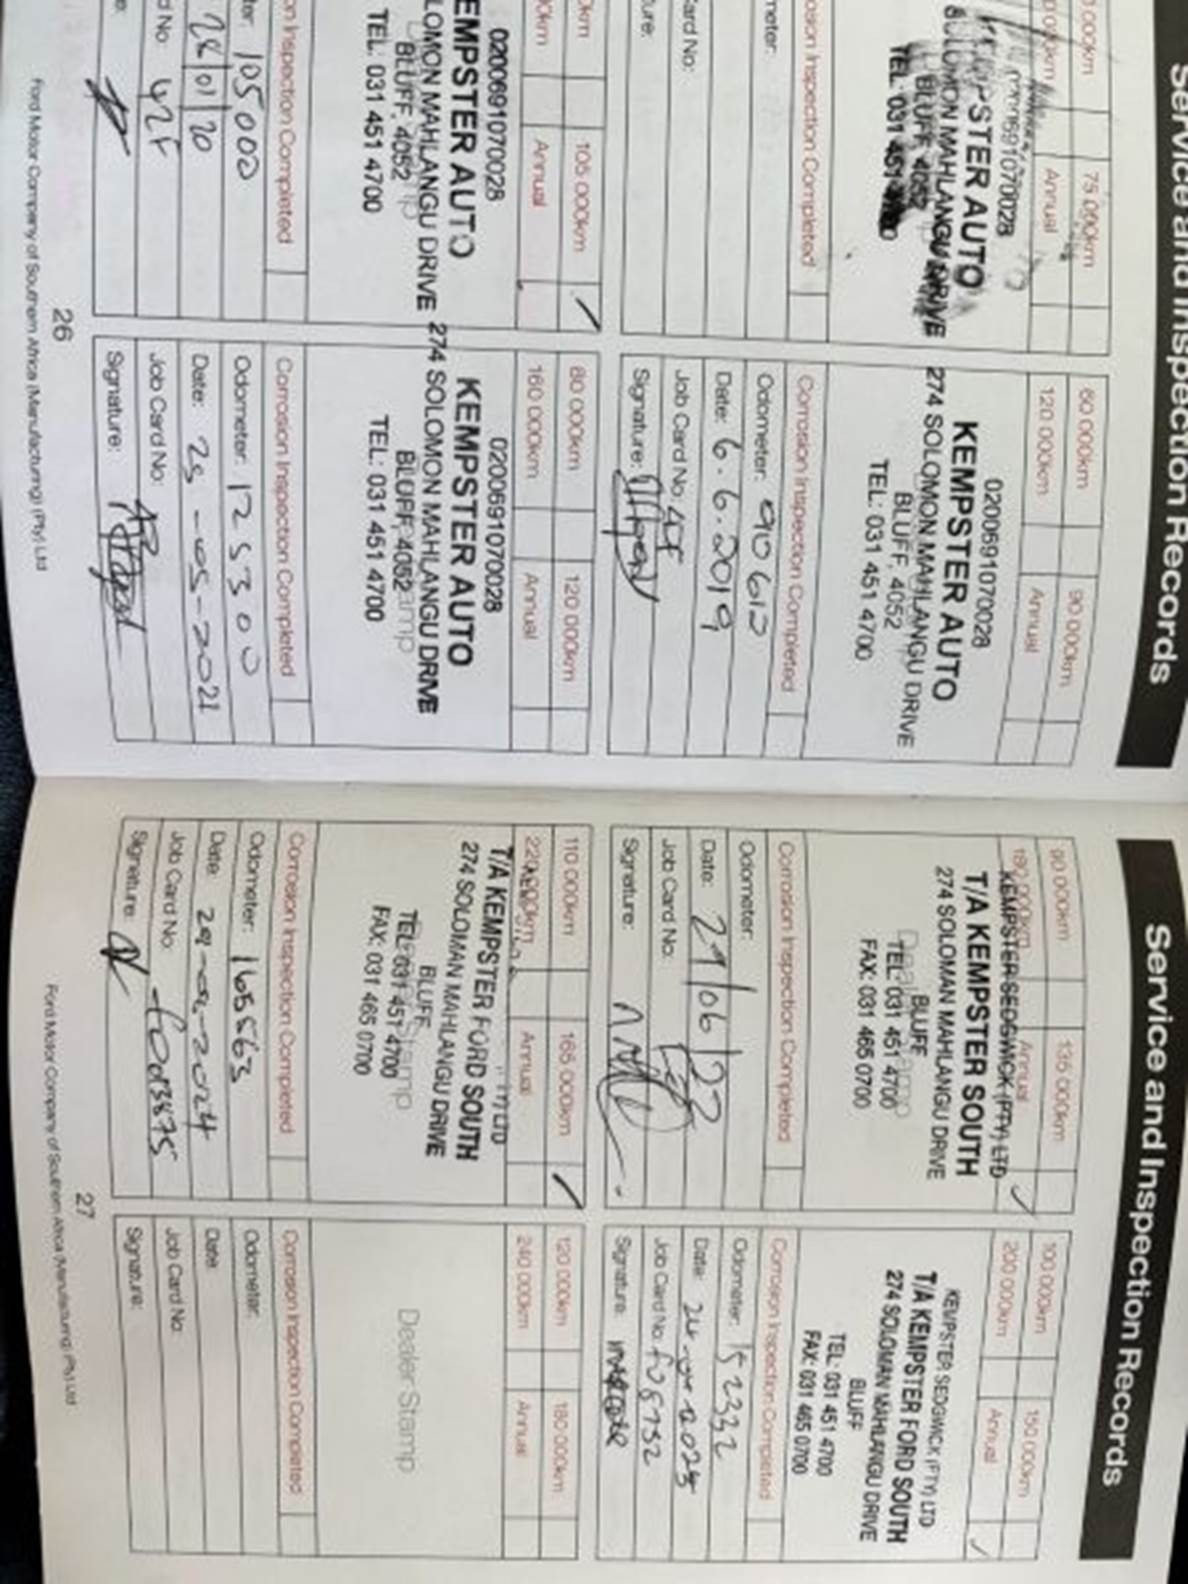 Service and Inspection Records
75 000km
Annual
020069107​0028
KEMPSTER AUTO
SOLOMON MAHLANGU DRIVE
BLUFF 4052
TEL: 031 451
Corrosion Inspection Completed
60 000km
90 000km
120 000km
Annual
0200691070028
KEMPSTER AUTO
274 SOLOMON MAHLANGU DRIVE
BLUFF, 4052
TEL: 031 451 4700
Corrosion Inspection Completed
Odometer: 90612
Date: 6.6.2019
Job Card No:
Signature:
105 000km
Annual
0200691070028
KEMPSTER AUTO
SOLOMON MAHLANGU DRIVE
BLUFF, 4052
TEL: 031 451 4700
Inspection Completed
105000
28/01/20
No: 42F
80 000km
120 000km
160 000km
Annual
0200691070028
KEMPSTER AUTO
274 SOLOMON MAHLANGU DRIVE
BLUFF 4052
TEL: 031 451 4700
Corrosion Inspection Completed
Odometer: 125300
Date: 25-05-2021
Job Card No:
Signature:
26
Ford Motor Company of Southern Africa (Manufacturing) (Pty) Ltd
Service and Inspection Records
90 000km
135 000km
180 000km
Annual
KEMPSTER SEDGWICK (PTY) LTD
T/A KEMPSTER SOUTH
274 SOLOMAN MAHLANGU DRIVE
BLUFF
TEL: 031 451 4700
FAX: 031 465 0700
Corrosion Inspection Completed
Odometer:
Date: 21/06/22
Job Card No:
Signature:
100 000km
150 000km
200 000km
Annual
KEMPSTER SEDGWICK (PTY) LTD
T/A KEMPSTER FORD SOUTH
274 SOLOMAN MAHLANGU DRIVE
BLUFF
TEL: 031 451 4700
FAX: 031 465 0700
Corrosion Inspection Completed
Odometer: 152332
Date:
Job Card No:
Signature:
110 000km
165 000km
220 000km
Annual
LTD
T/A KEMPSTER FORD SOUTH
274 SOLOMAN MAHLANGU DRIVE
BLUFF
TEL: 031 451 4700
FAX: 031 465 0700
Corrosion Inspection Completed
Odometer: 165563
Date
Job Card No:
Signature:
120 000km
180 000km
240 000km
Annual
Dealer Stamp
Corrosion Inspection Completed
Odometer:
Date
Job Card No:
Signature:
27
Ford Motor Company of Southern Africa (Manufacturing) (Pty) Ltd